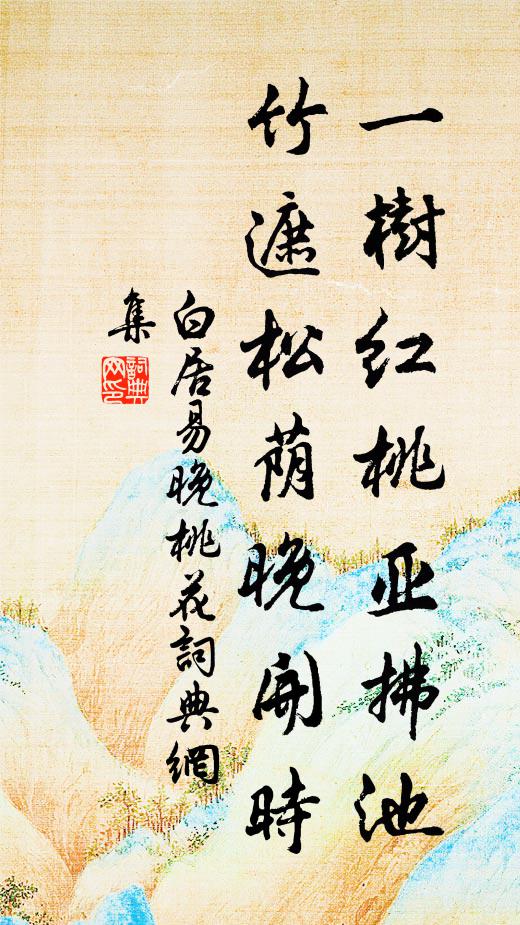 一樹红桃亚拂池
竹遮松荫晚開時
白居易晚桃花詞典網
集
詞典网印